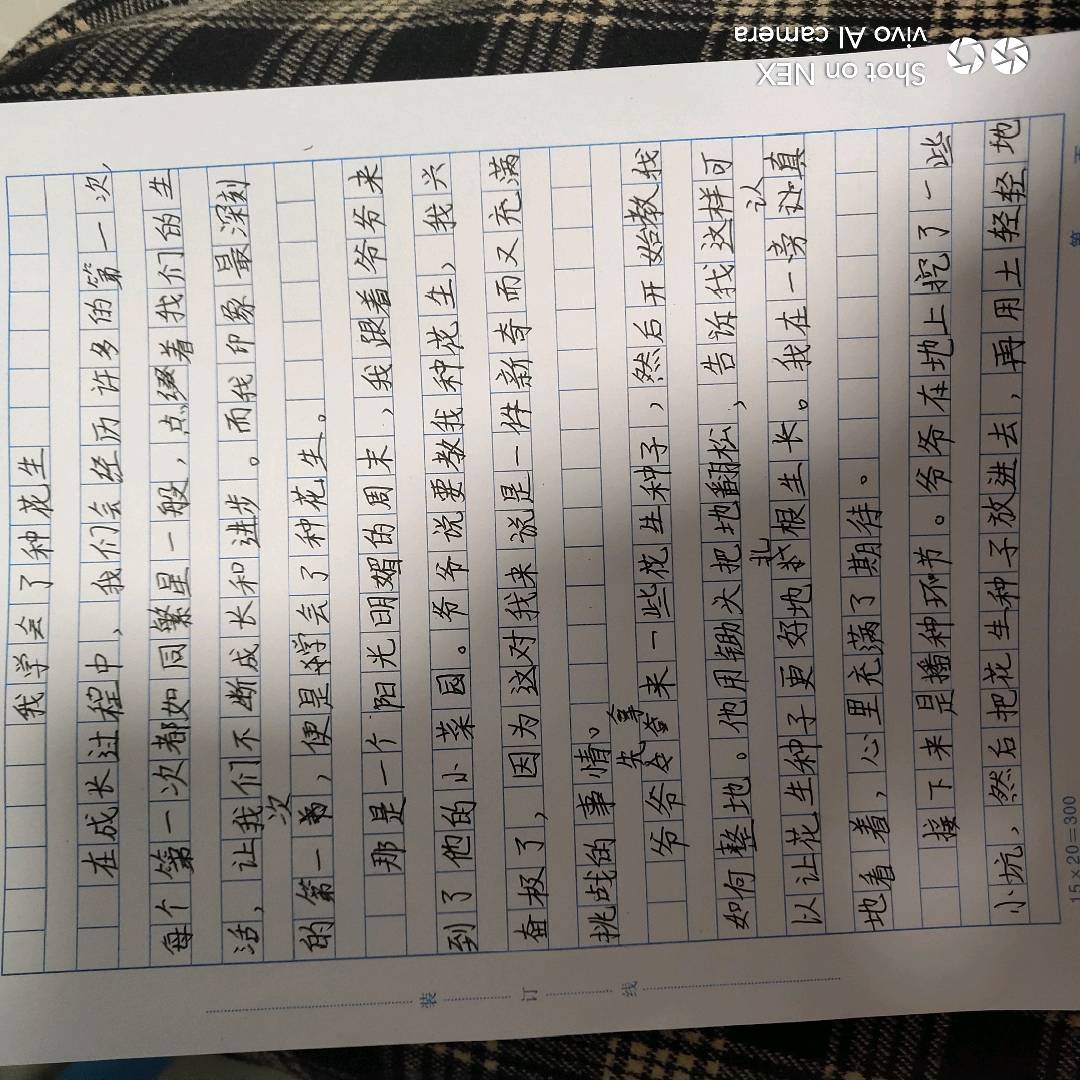 我学会了种花生
在成长过程中、我们会经历许多的第一次
每个第一次都如同繁星一般，点缀着我们的生
活、让我们不断成长和进步。而我印象最深刻
的第一次，便是学会了种花生。
那是一个阳光明媚的周末，我跟着爷爷来
到了他的小菜园。爷爷说要教我种花生，我兴
奋极了，因为这对我来说是一件新奇而又充满
挑战的事情。
爷爷先拿来一些花生种子，然后开始教我
如何整地。他用锄头把地翻松，告诉我这样可
以让花生种子更好地扎根生长。我在一旁认真
地看着，心里充满了期待。
接下来是播种环节。爷爷在地上挖了一些
小坑、然后把花生种子放进去，再用土轻轻地
15×20=300
第 页
装 订 线
Shot on NEX
vivo AI camera